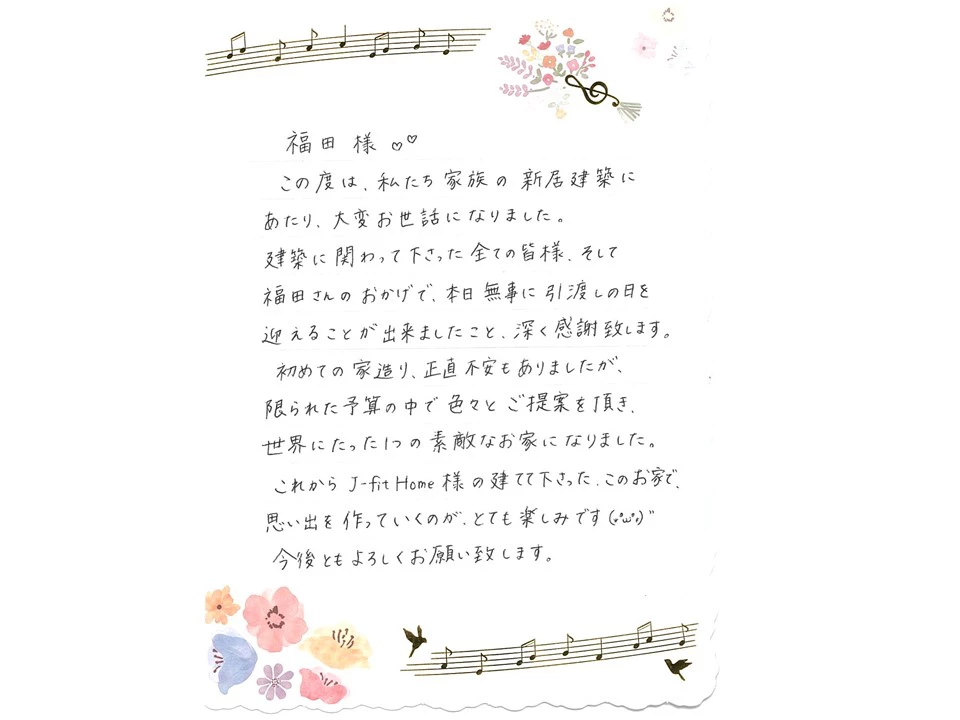 福田 様 ♡♡
この度は、私たち 家族の 新居建築に
あたり、大変お世話になりました。
建築に 関わって下さった 全ての皆様、そして
福田さんの おかげで、本日 無事に 引渡しの日を
迎えることが出来ましたこと、深く感謝致します。
初めての家造り、正直不安もありましたが、
限られた予算の中で 色々と ご提案を頂き、
世界にたった1つの 素敵なお家になりました。
これから J-fit Home 様の建てて下さった、このお家で、
思い出を 作っていくのが、とても楽しみです(*°ω°*)"
今後ともよろしくお願い致します。